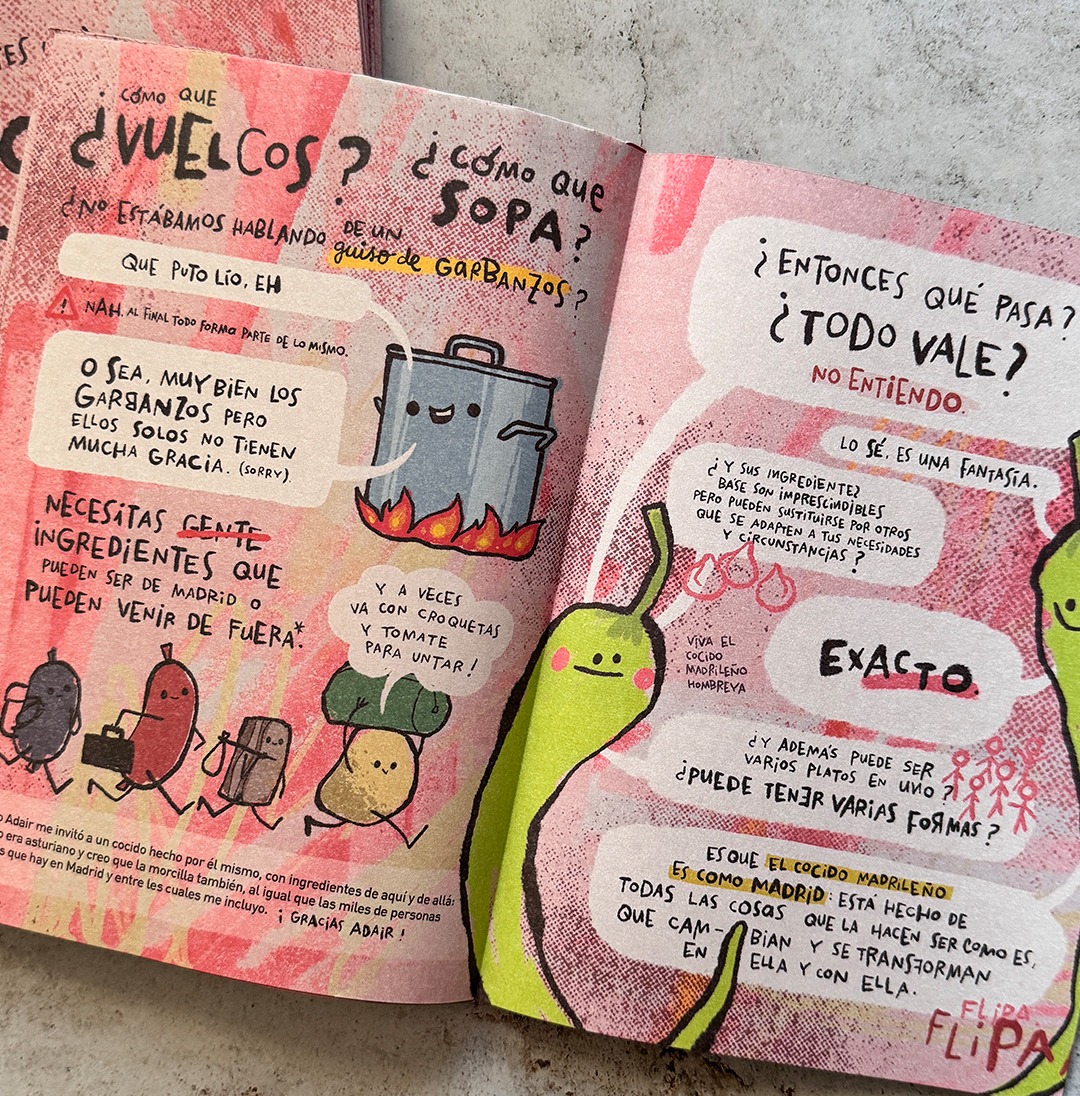 TES
CÓMO QUE
¿VUELCOS?
¿CÓMO QUE
SOPA?
¿NO ESTÁBAMOS HABLANDO DE UN
guiso de GARBANZOS?
QUE PUTO LÍO, EH
! NAH. AL FINAL TODO FORMA PARTE DE LO MISMO.
O SEA, MUY BIEN LOS
GARBANZOS PERO
ELLOS SOLOS NO TIENEN
MUCHA GRACIA. (SORRY).
NECESITAS GENTE
INGREDIENTES QUE
PUEDEN SER DE MADRID O
PUEDEN VENIR DE FUERA*.
Y A VECES
VA CON CROQUETAS
Y TOMATE
PARA UNTAR!
Adair me invitó a un cocido hecho por él mismo, con ingredientes de aquí y de allá:
era asturiano y creo que la morcilla también, al igual que las miles de personas
que hay en Madrid y entre les cuales me incluyo. ¡GRACIAS ADAIR!
¿ENTONCES QUÉ PASA?
¿TODO VALE?
NO ENTIENDO.
LO SÉ, ES UNA FANTASÍA.
¿Y SUS INGREDIENTES
BASE SON IMPRESCINDIBLES
PERO PUEDEN SUSTITUIRSE POR OTROS
QUE SE ADAPTEN A TUS NECESIDADES
Y CIRCUNSTANCIAS?
VIVA EL
COCIDO
MADRILEÑO
HOMBREYA
EXACTO.
¿Y ADEMÁS PUEDE SER
VARIOS PLATOS EN UNO?
¿PUEDE TENER VARIAS FORMAS?
ES QUE EL COCIDO MADRILEÑO
ES COMO MADRID: ESTÁ HECHO DE
TODAS LAS COSAS QUE LA HACEN SER COMO ES,
QUE CAM-BIAN Y SE TRANSFORMAN
EN ELLA Y CON ELLA.
FLIPA
FLIPA